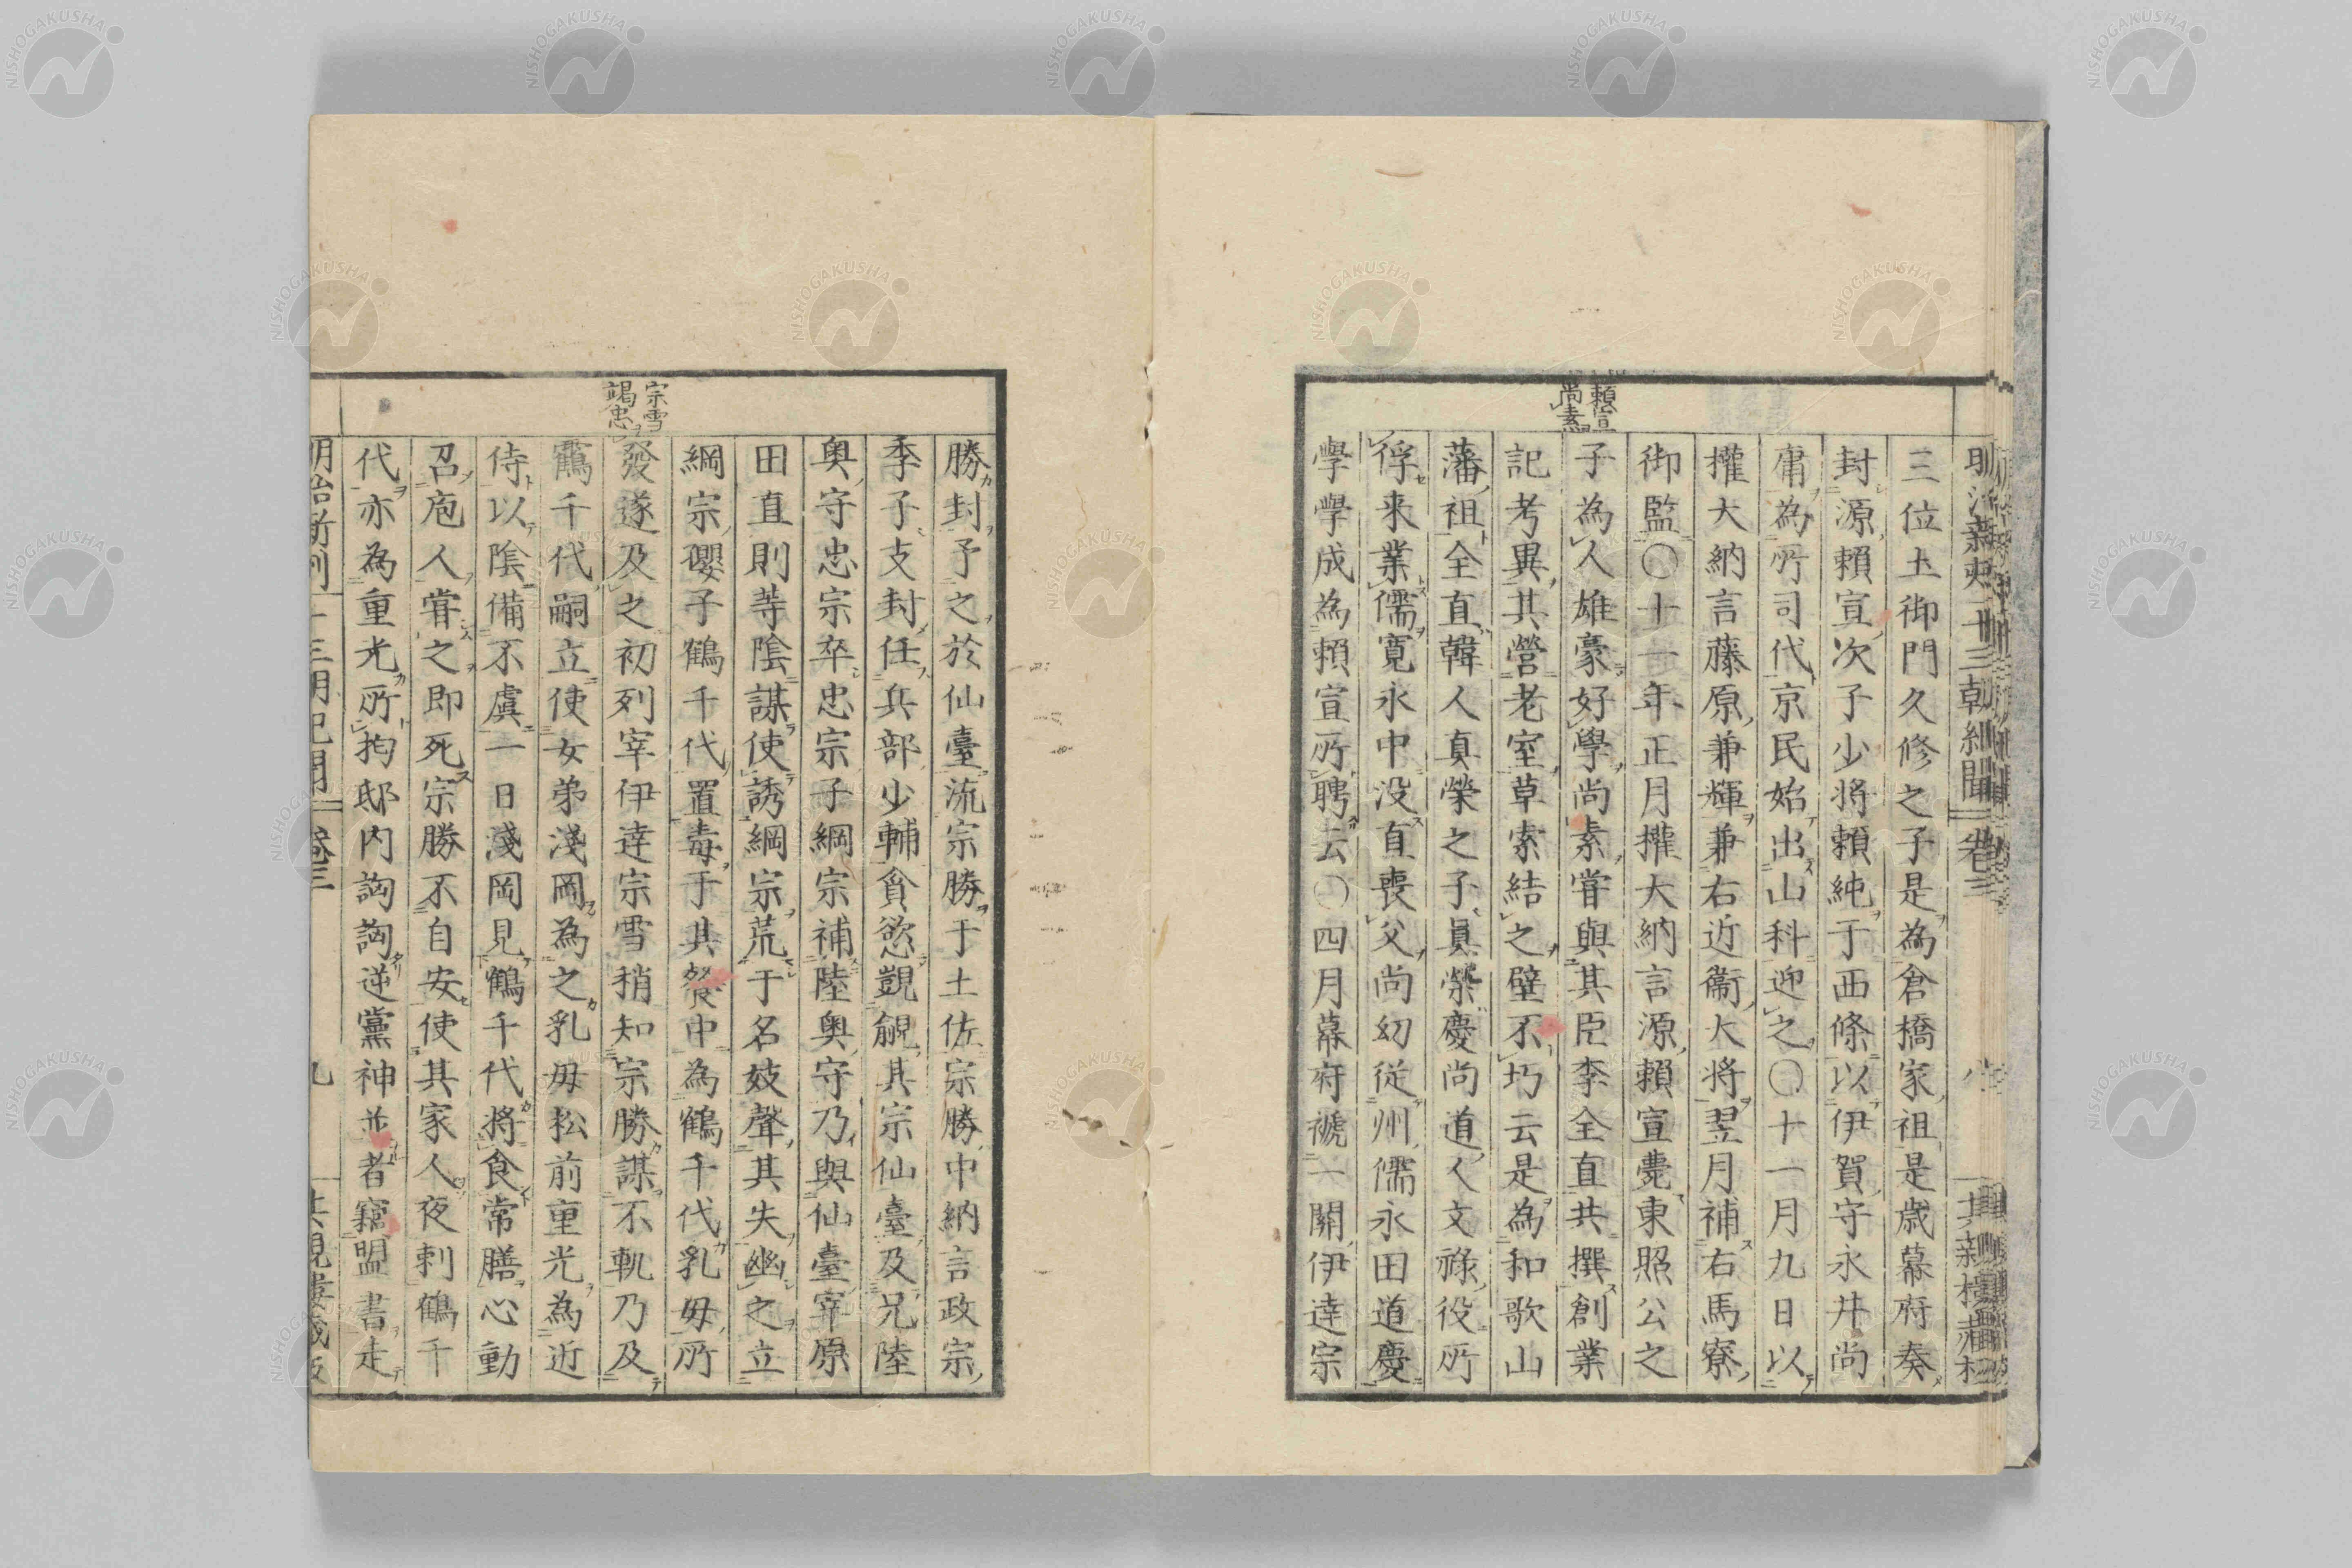 賴宣
尚素
三位土御門久修之子是為倉橋家祖是歳幕府奏
封源賴宣次子少將賴純于西條以伊賀守永井尚
庸為所司代京民始出山科迎之〇十一月九日以
權大納言藤原兼輝兼右近衞大將翌月補右馬寮
御監〇十一年正月權大納言源賴宣薨東照公之
子為人雄豪好學尚素甞與其臣李全直共撰創業
記考異其營老室草索結之壁不圬云是為和歌山
藩祖全直韓人真榮之子真榮慶尚道人文祿役所
俘来業儒寛永中没直喪父尚幼從州儒永田道慶
學學成為賴宣所聘云〇四月幕府褫一關伊達宗
宗雪
竭忠
勝封予之於仙臺流宗勝于土佐宗勝中納言政宗
季子支封任兵部少輔貪慾覬覦其宗仙臺及兄陸
奥守忠宗卒忠宗子綱宗補陸奥守乃與仙臺宰原
田直則等陰謀使誘綱宗荒于名妓聲其失幽之立
綱宗孾子鶴千代置毒于其餐中為鶴千代乳毋所
發遂及之初列宰伊達宗雪稍知宗勝謀不軌乃及
鶴千代嗣立使女弟淺岡為之乳毋松前重光為近
侍以陰備不虞一日淺岡見鶴千代將食常膳心動
召庖人甞之即死宗勝不自安使其家人夜刺鶴千
代亦為重光所拘邸内詾詾逆黨神並者竊盟書走